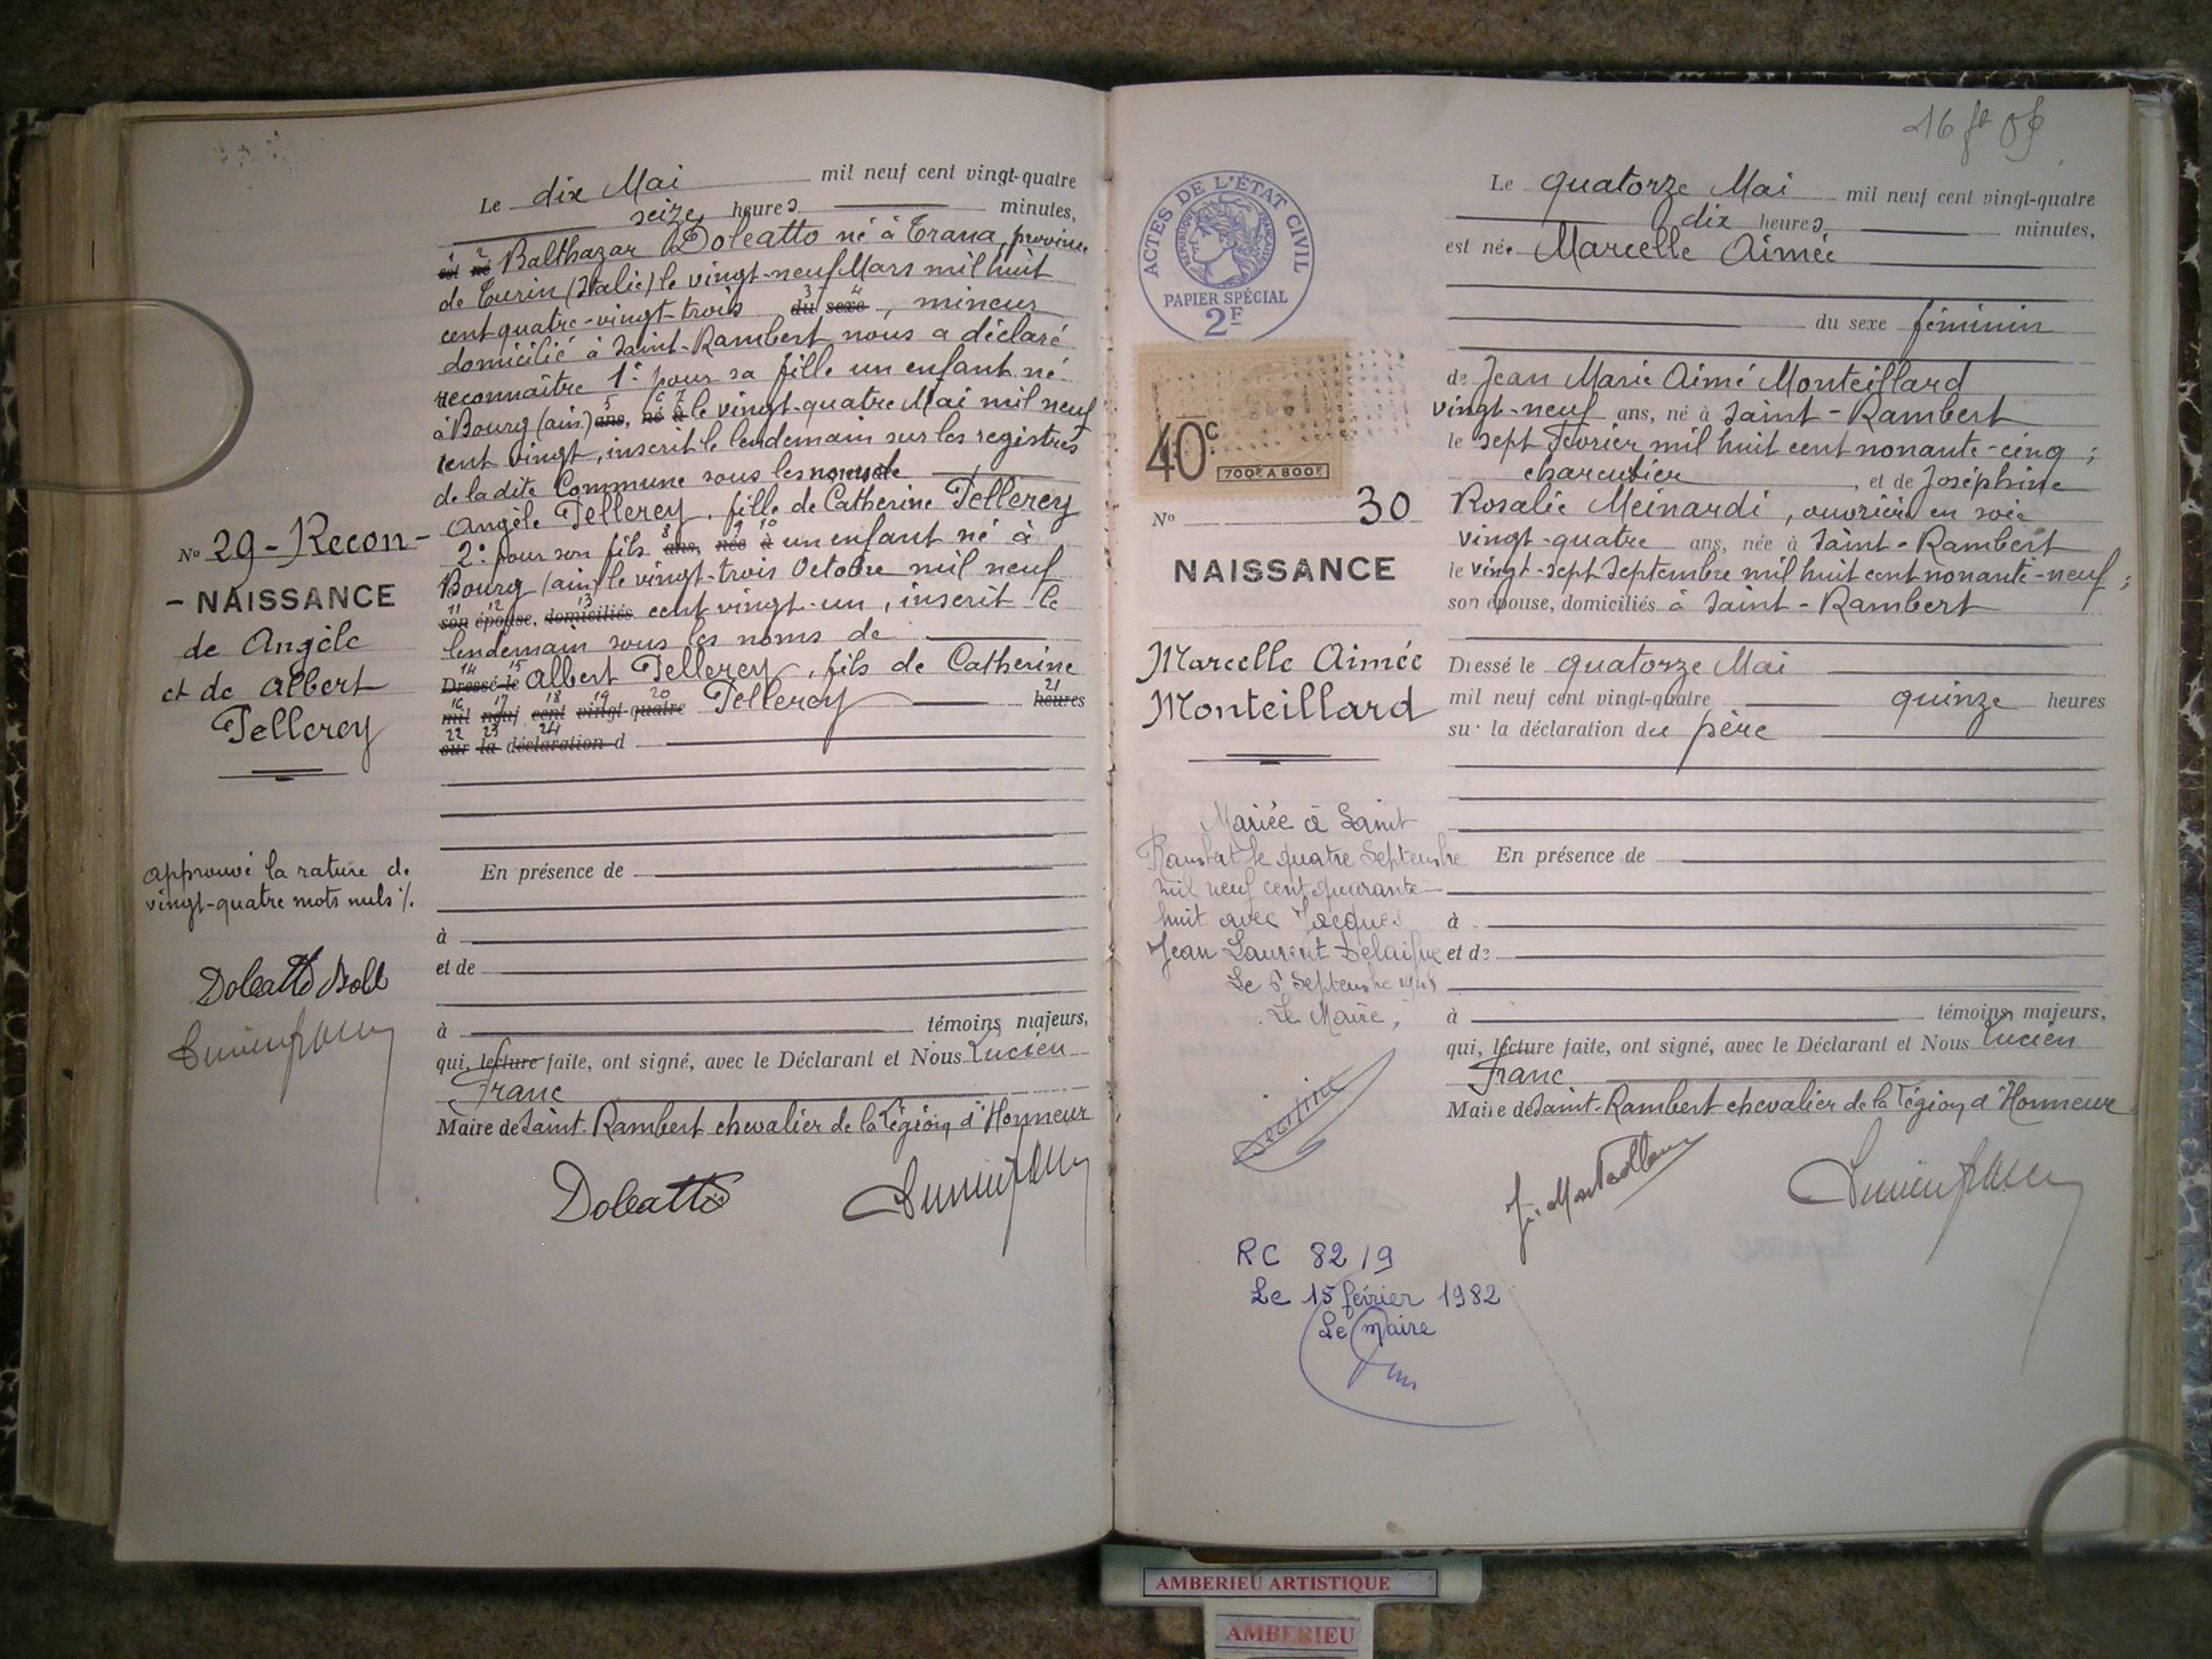 Le dix Mai mil neuf cent vingt-quatre
seize heures minutes,
1 2
est né Balthazar Doleatto né à Trana, province
de Turin (Italie) le vingt-neuf Mars mil huit
3 4
cent quatre-vingt-trois du sexe, mineur
domicilié à Saint-Rambert nous a déclaré
reconnaître 1º pour sa fille un enfant né
5 6 7
à Bourg (ain) ans, né à le vingt-quatre Mai mil neuf
cent vingt, inscrit le lendemain sur les registres
de la dite Commune sous les noms de
Angèle Pellerey, fille de Catherine Pellerey
8 9 10
2º pour son fils ans, née à un enfant né à
Bourg (ain) le vingt-trois Octobre mil neuf
11 12 13
son épouse, domiciliés cent vingt-un, inscrit le
lendemain sous les noms de
14 15
Dressé le Albert Pellerey, fils de Catherine
16 17 18 19 20 21
mil neuf cent vingt-quatre Pellerey heures
22 23 24
sur la déclaration d
En présence de
à
et de
à témoins majeurs,
qui, lecture faite, ont signé, avec le Déclarant et Nous Lucien
Franc
Maire de Saint-Rambert chevalier de la Légion d'Honneur
Doleatto
Nº 29 - Recon-
- NAISSANCE
de Angèle
et de Albert
Pellerey
approuvé la rature de
vingt-quatre mots nuls %.
Doleatto
16
ACTES DE L'ÉTAT CIVIL
RÉPUBLIQUE FRANÇAISE
PAPIER SPÉCIAL
2F
40c
700F A 800F
Nº 30
NAISSANCE
Marcelle Aimée
Monteillard
Mariée à Saint
Rambert le quatre Septembre
mil neuf cent quarante-
huit avec Jacques
Jean Laurent Delaigue
Le 6 Septembre 1948
Le Maire,
RC 82/9
Le 15 février 1982
Le Maire
Le quatorze Mai mil neuf cent vingt-quatre
dix heures minutes,
est née Marcelle Aimée
du sexe féminin
de Jean Marie Aimé Monteillard
vingt-neuf ans, né à Saint-Rambert
le sept Février mil huit cent nonante-cinq;
charcutier, et de Joséphine
Rosalie Meinardi, ouvrière en soie
vingt-quatre ans, née à Saint-Rambert
le vingt-sept Septembre mil huit cent nonante-neuf;
son épouse, domiciliés à Saint-Rambert
Dressé le quatorze Mai
mil neuf cent vingt-quatre quinze heures
sur la déclaration du père
En présence de
à
et de
à témoins majeurs,
qui, lecture faite, ont signé, avec le Déclarant et Nous Lucien
Franc
Maire de Saint-Rambert chevalier de la Légion d'Honneur
AMBERIEU ARTISTIQUE
AMBERIEU